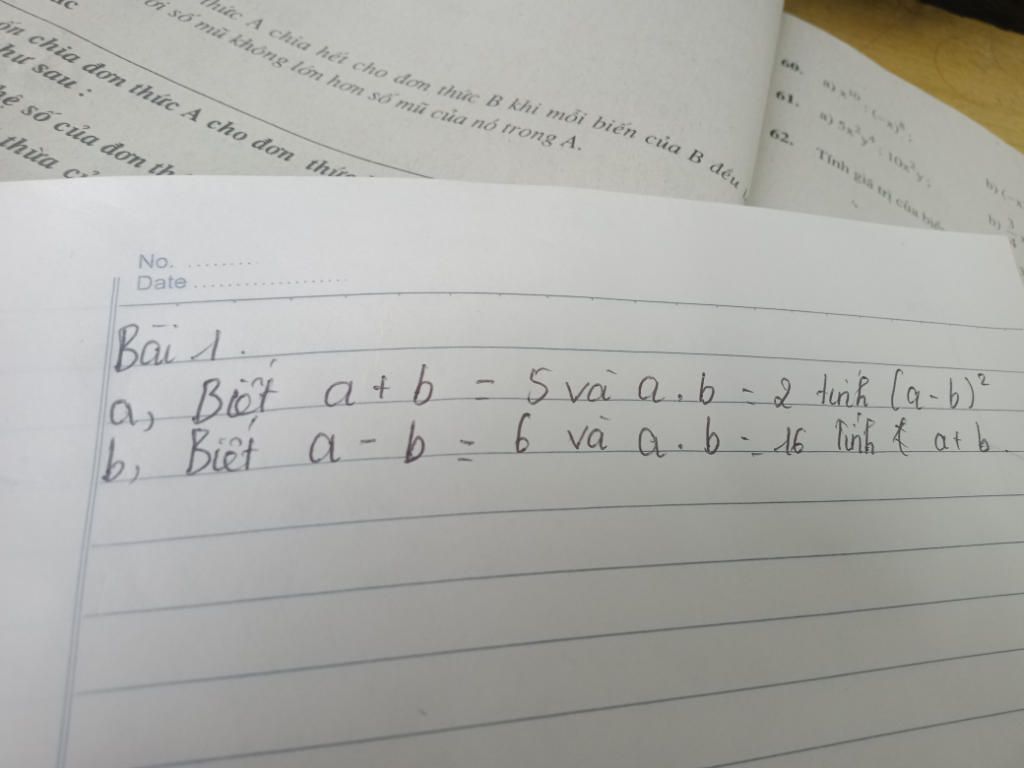 thức A chia hết cho đơn thức B khi mỗi biến của B đều
ới số mũ không lớn hơn số mũ của nó trong A.
ốn chia đơn thức A cho đơn thức
hư sau :
hệ số của đơn th
thừa củ
60. a) x¹⁰ : (–x)⁸ ;
61. a) 5x²y⁴ : 10x²y ;
62. Tính giá trị của biể
b) (–x
b) 3
No. ..........
Date ....................
Bài 1.
a, Biết a + b = 5 và a . b = 2 tính (a - b)²
b, Biết a - b = 6 và a . b = 16 Tính a + b.